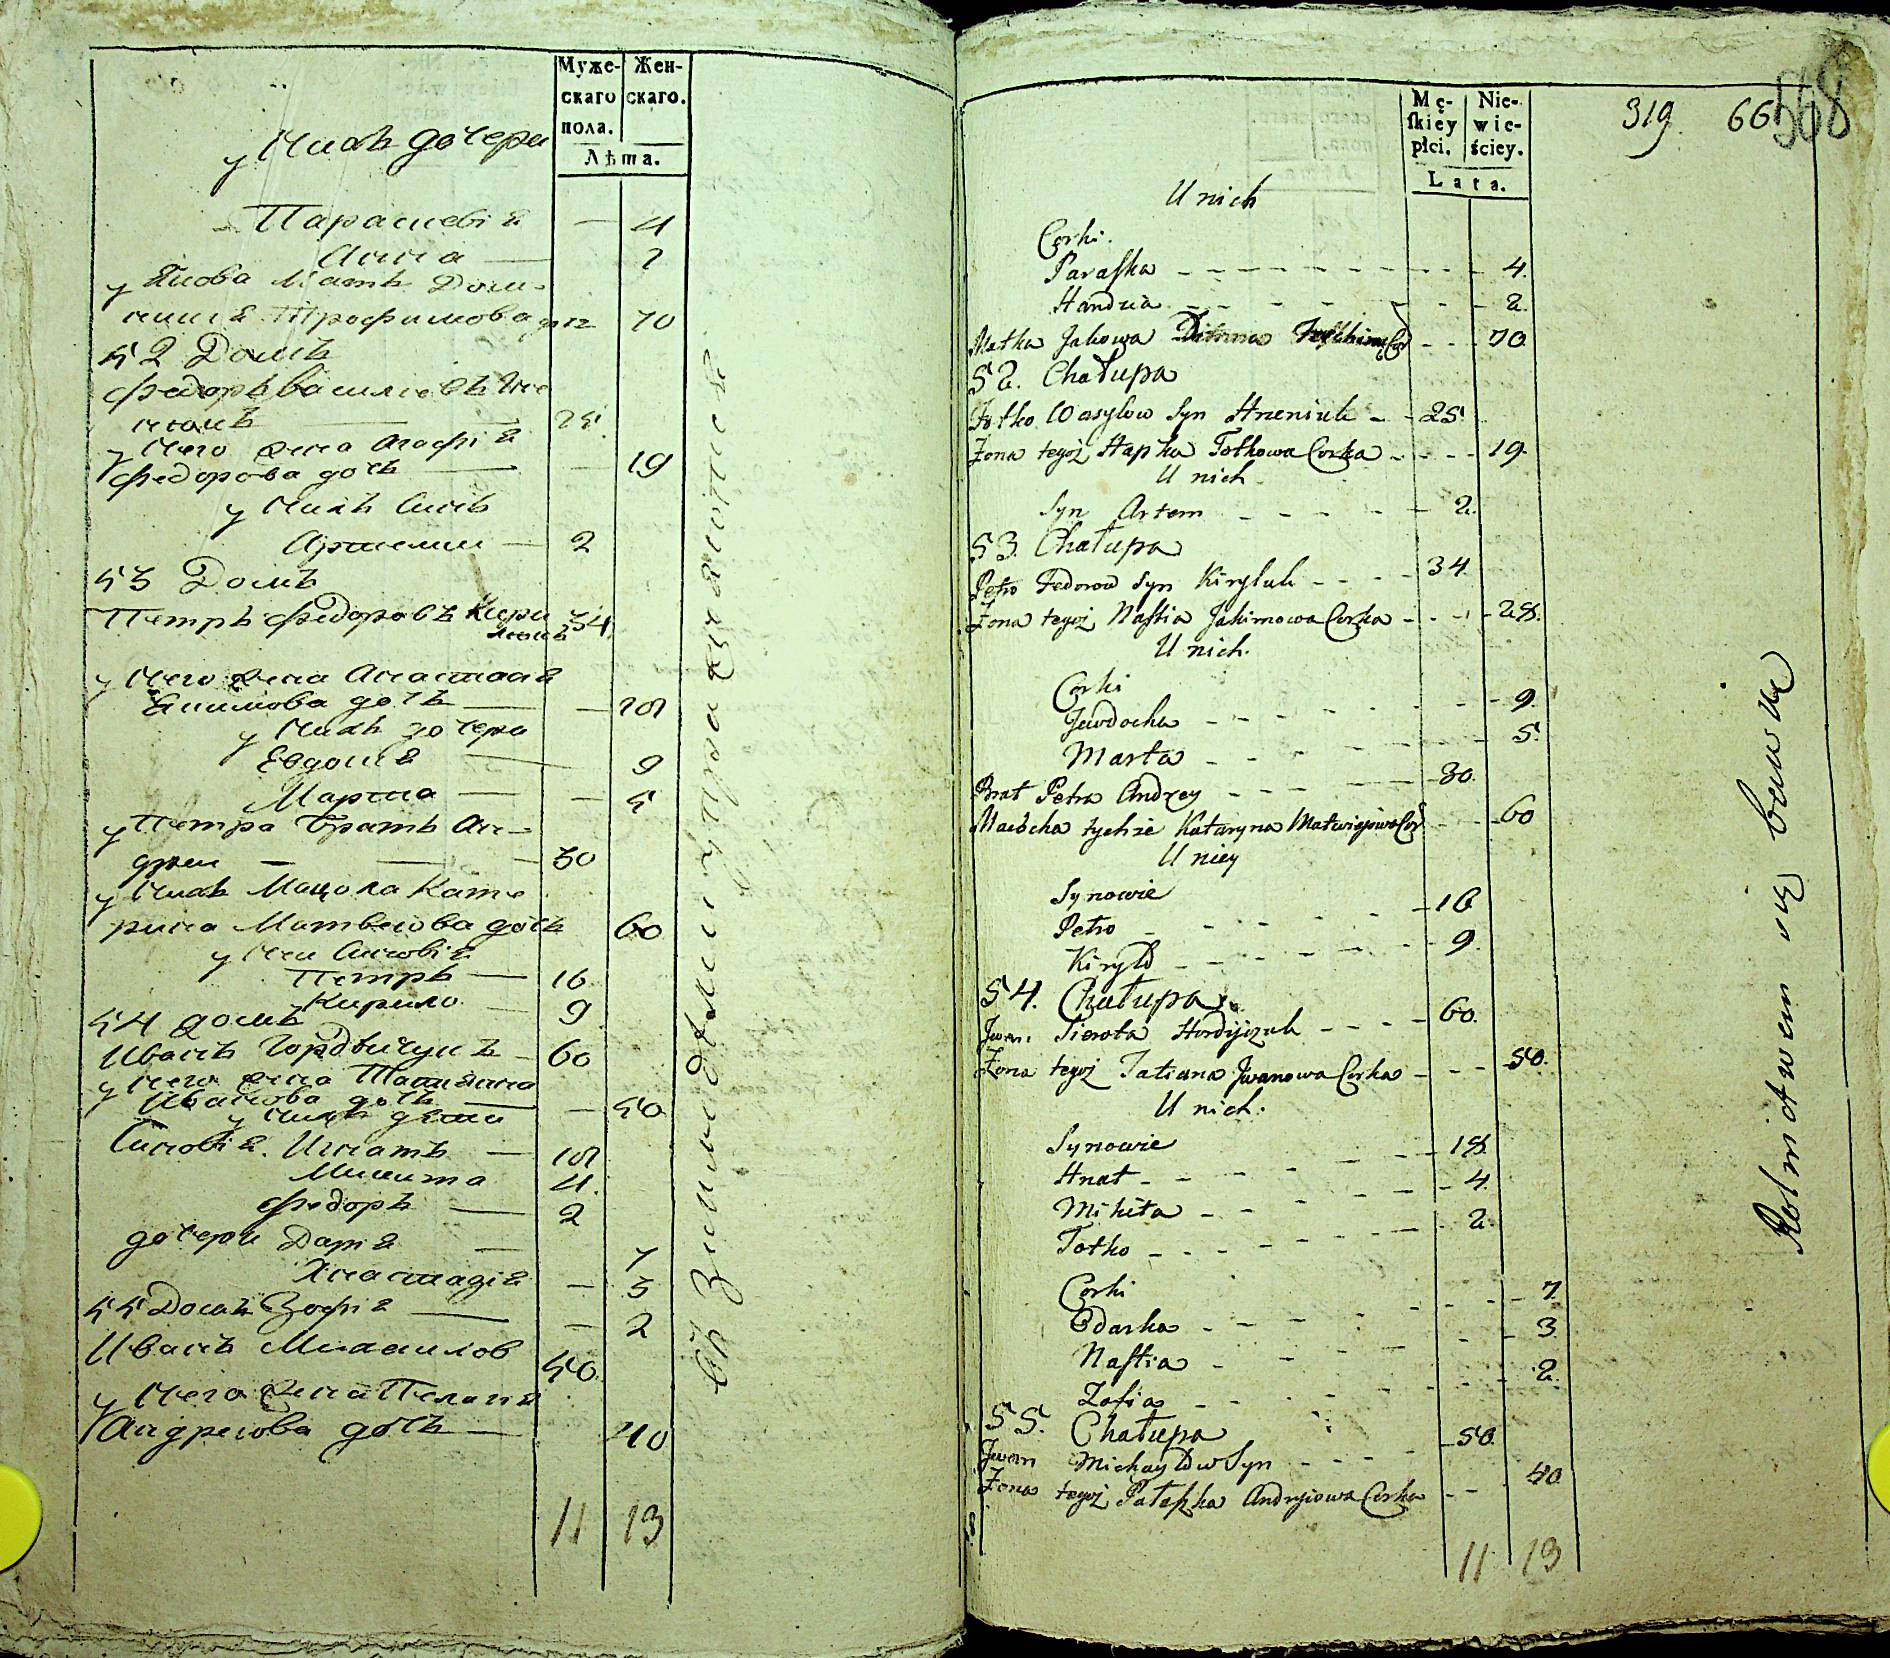 Муже-
скаго
пола.
Жен-
скаго.
Лѣта.
у нихъ дочери
Параскевія — 4
Анна — 2
у Якова Мать Доми-
никія Трофимова дочь 70
52 Домъ
Федоръ Василіевъ Гре
нюкъ 25
у него жена Агафія
Федорова дочь — 19
у нихъ Синъ
Артемий — 2
53 Домъ
Петръ Федоровъ Кири
люкъ 34
у него жена Анастасія
Якимова дочь — 28
у нихъ дочери
Евдокія — 9
Марта — 5
у Петра братъ Ан-
дрей — 30
у нихъ Мацоха Кате
рина Матвеюва дочь 60
у неи Синовія
Петръ — 16
Кирило — 9
54 Домъ
Иванъ Гордѣичукъ — 60
у него жена Татияна
Иванова дочь — 50
у нихъ дѣти
Синовія. Игнатъ — 18
Микита 4
Федоръ — 2
дочери Дарія — 7
Анастазія — 3
55 Домъ Зофія — 2
Иванъ Михаилов 50
у него жена Пелагія
Андреюва дочь — 40
11 13
Mę-
ſkiey
płci.
Nie-
wie-
ściey.
Lata.
319. 66 568
U nich
Corki.
Paraſka - - - 4.
Handzia - - - 2.
Matka Jakowa - - - 70
52. Chałupa
Fotko Wasylow Syn Hreniuk - - 25
Zona tegoż Hapka Fotkowa Corka - - - 19.
U nich
Syn Artem - - - 2.
53. Chałupa
Petro Fedorow Syn Kiryluk - - - 34
Zona tegoż Naſtia Jakimowa Corka - - - 28.
U nich.
Corki
Jewdocha - - - 9.
Marta - - - 5.
Brat Petra Andrzey - - - 30.
Macocha tychże Kataryna Matwiejowa Cor - - - 60
U niey
Synowie
Petro - - - 16
Kiryło - - - 9.
54. Chałupa
Jwan Sierota Hordijczuk - - - 60.
Zona tegoż Tatiana Jwanowa Corka - - - 50.
U nich.
Synowie
Hnat - - - 18.
Mikita - - - 4.
Fotko - - - 2.
Corki
Odarka - - - 7.
Naſtia - - - 3.
Zofia - - - 2.
55. Chałupa
Jwan Michayłow Syn - - - 50.
Zona tegoż Pałażka Andryiowa Corka - - - 40.
11 13
Rolnictwem się bawią